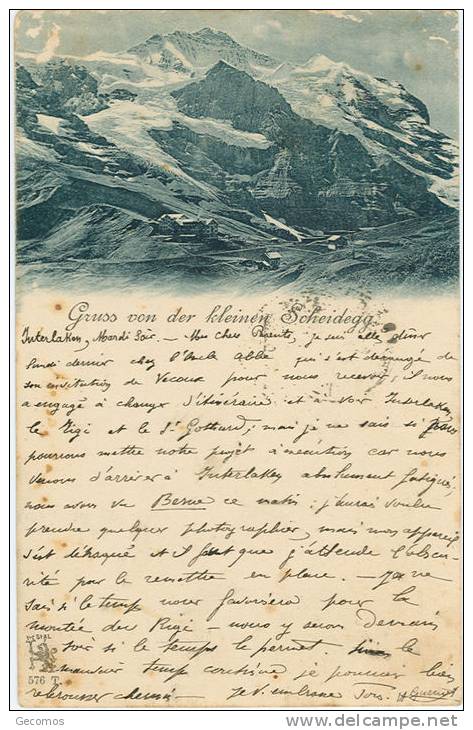 Gruss von der kleinen Scheidegg
Interlaken, Mardi Soir. — Mes chers Parents, je suis allé dîner
lundi dernier chez l'Oncle abbé qui s'est dérangé de
son de Vecoux pour nous recevoir; il nous
a engagé à changer d'itinéraire et à voir Interlaken,
le Rigi et le St Gothard; mais je ne sais si nous
pourrons mettre notre projet à exécution car nous
venons d'arriver à Interlaken absolument fatigués,
nous avons vu Berne ce matin; j'aurais voulu
prendre quelques photographies, mais mon appareil
s'est détraqué et il faut que j'attende l'obscu-
rité pour le remettre en place. — Je ne
sais si le temps nous favorisera pour la
montée du Rigi — nous y serons demain
soir si le temps le permet. le
mauvais temps continue je pourrai bien
rebrousser chemin Je v. embrasse Tous.
VEDIAL
576 T.
Gecomos
www.delcampe.net